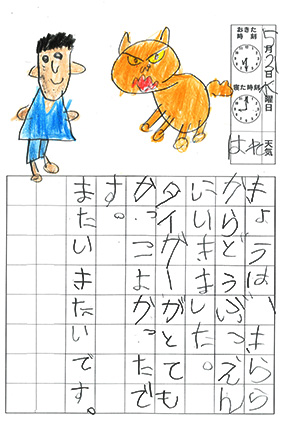 5月2日水曜日
天気
はれ
おきた時刻
寝た時刻
きょうは、きらら
からどうぶつえん
にいきました。
タイガーがとても
かっこよかったで
す。
またいきたいです。